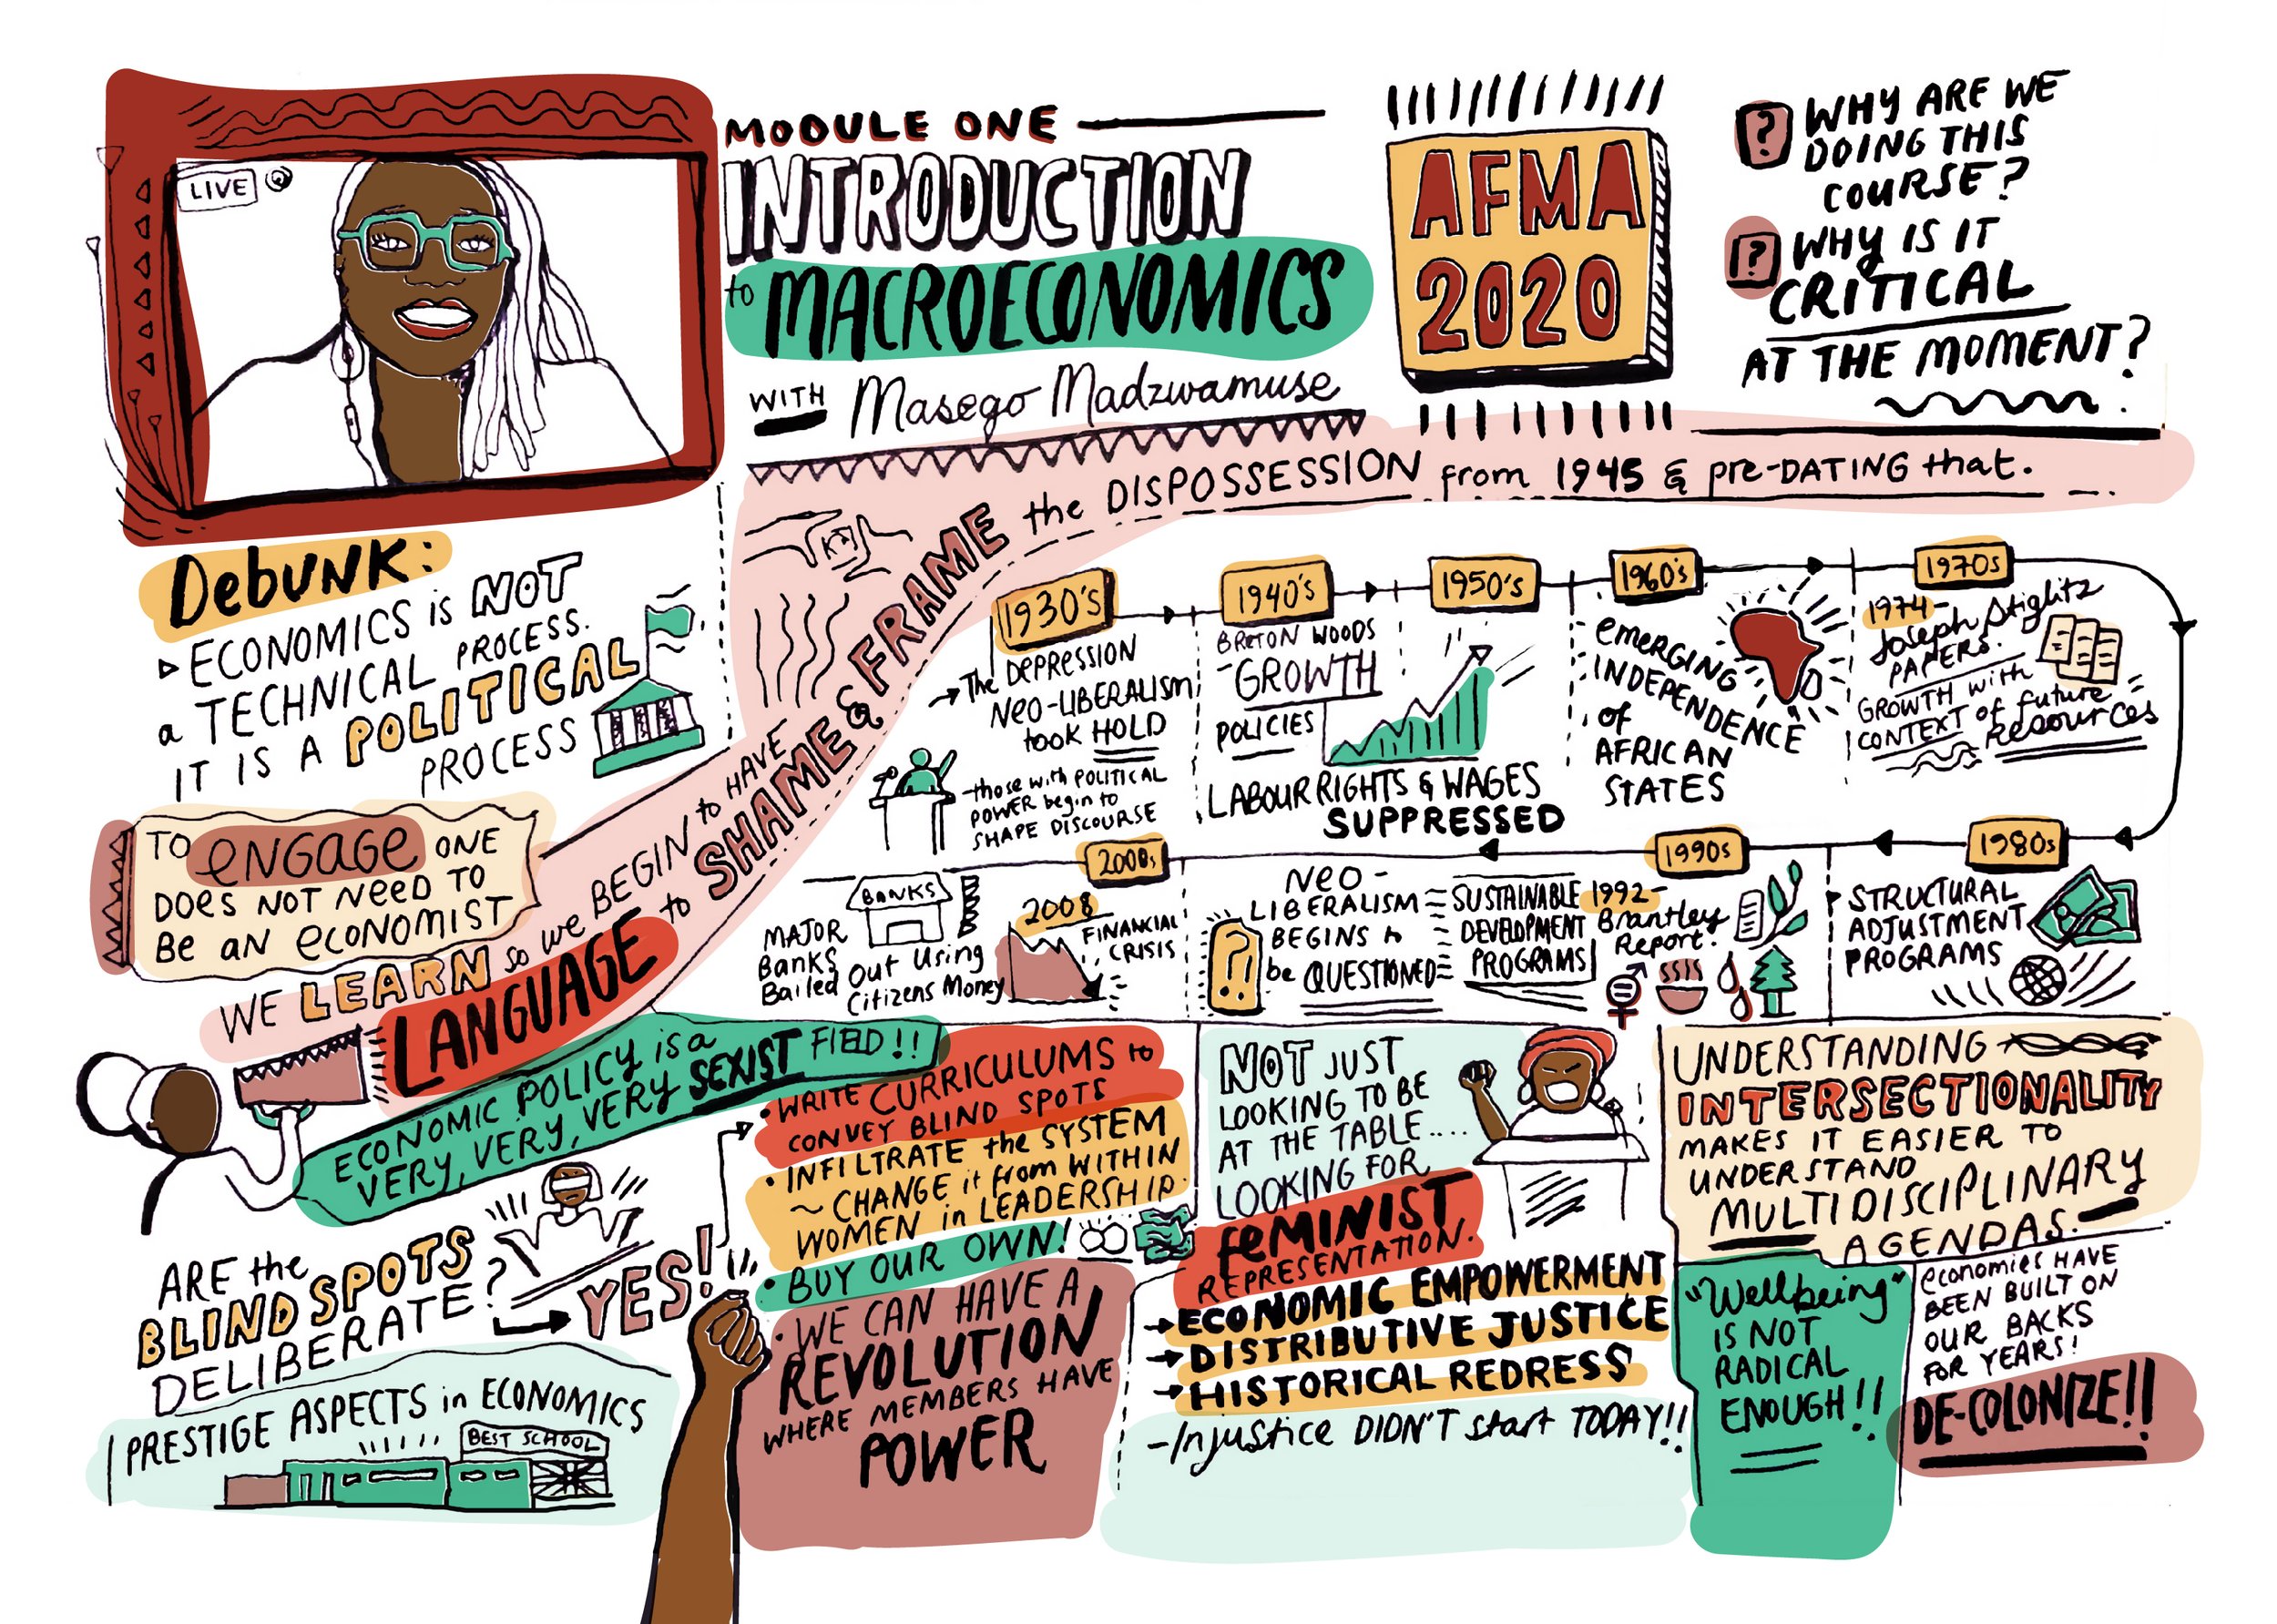 LIVE
MODULE ONE
INTRODUCTION
to MACROECONOMICS
WITH Masego Madzwamuse
AFMA
2020
? WHY ARE WE
DOING THIS
COURSE?
? WHY IS IT
CRITICAL
AT THE MOMENT?
DebUNK:
ECONOMICS is NOT
a TECHNICAL PROCESS.
IT IS A POLITICAL
PROCESS
TO eNGaGe ONE
DOeS NOT NeeD TO
Be aN eCONOMIST
WE LEARN so we BEGIN to HAVE
LANGUAGE to SHAME & FRAME the DISPOSSESSION from 1945 & pre-DATING that.
1930's
The DEPRESSION
NEO-LIBERALISM
took HOLD
-those with POLITICAL
POWER begin to
SHAPE DISCOURSE
1940's
BRETON WOODS
-GROWTH
POLICIES
1950's
LABOUR RIGHTS & WAGES
SUPPRESSED
1960's
emERGING
INDEPENDENCE
of
AFRICAN
STATES
1970s
1974-
Joseph Stiglitz
PAPERS.
GROWTH with
CONTEXT of future
Resources
1980s
STRUCTURAL
ADJUSTMENT
PROGRAMS
1990s
1992-
Brantley
Report.
SUSTAINABLE
DEVELOPMENT
PROGRAMS
NEO-
LIBERALISM
BEGINS to
be QUESTIONED
?
2000s
2008
FINANCIAL
CRISIS
BANKS
MAJOR
Banks
Bailed Out Using
Citizens Money
ECONOMIC POLICY is a
VERY, VERY, VERY SEXIST FIELD!!
ARE the
BLIND SPOTS
DELIBERATE?
YES!
PRESTIGE ASPECTS in ECONOMICS
BEST SCHOOL
• WRITE CURRICULUMS to
CONVEY BLIND SPOTS
• INFILTRATE the SYSTEM
~ CHANGE it from WITHIN
WOMEN in LEADERSHIP.
• BUY OUR OWN!
• WE CAN HAVE A
REVOLUTION
WHERE MEMBERS HAVE
POWER
NOT JUST
LOOKING TO BE
AT THE TABLE....
LOOKING FOR
FEMINIST
REPRESENTATION.
→ECONOMIC EMPOWERMENT
→DISTRIBUTIVE JUSTICE
→HISTORICAL REDRESS
-Injustice DIDN'T start TODAY!!
UNDERSTANDING
INTERSECTIONALITY
MAKES IT EASIER TO
UNDERSTAND
MULTIDISCIPLINARY
AGENDAS.
"Wellbeing"
IS NOT
RADICAL
ENOUGH!!
economies HAVE
BEEN BUILT ON
OUR BACKS
FOR YEARS!
DE-COLONIZE!!